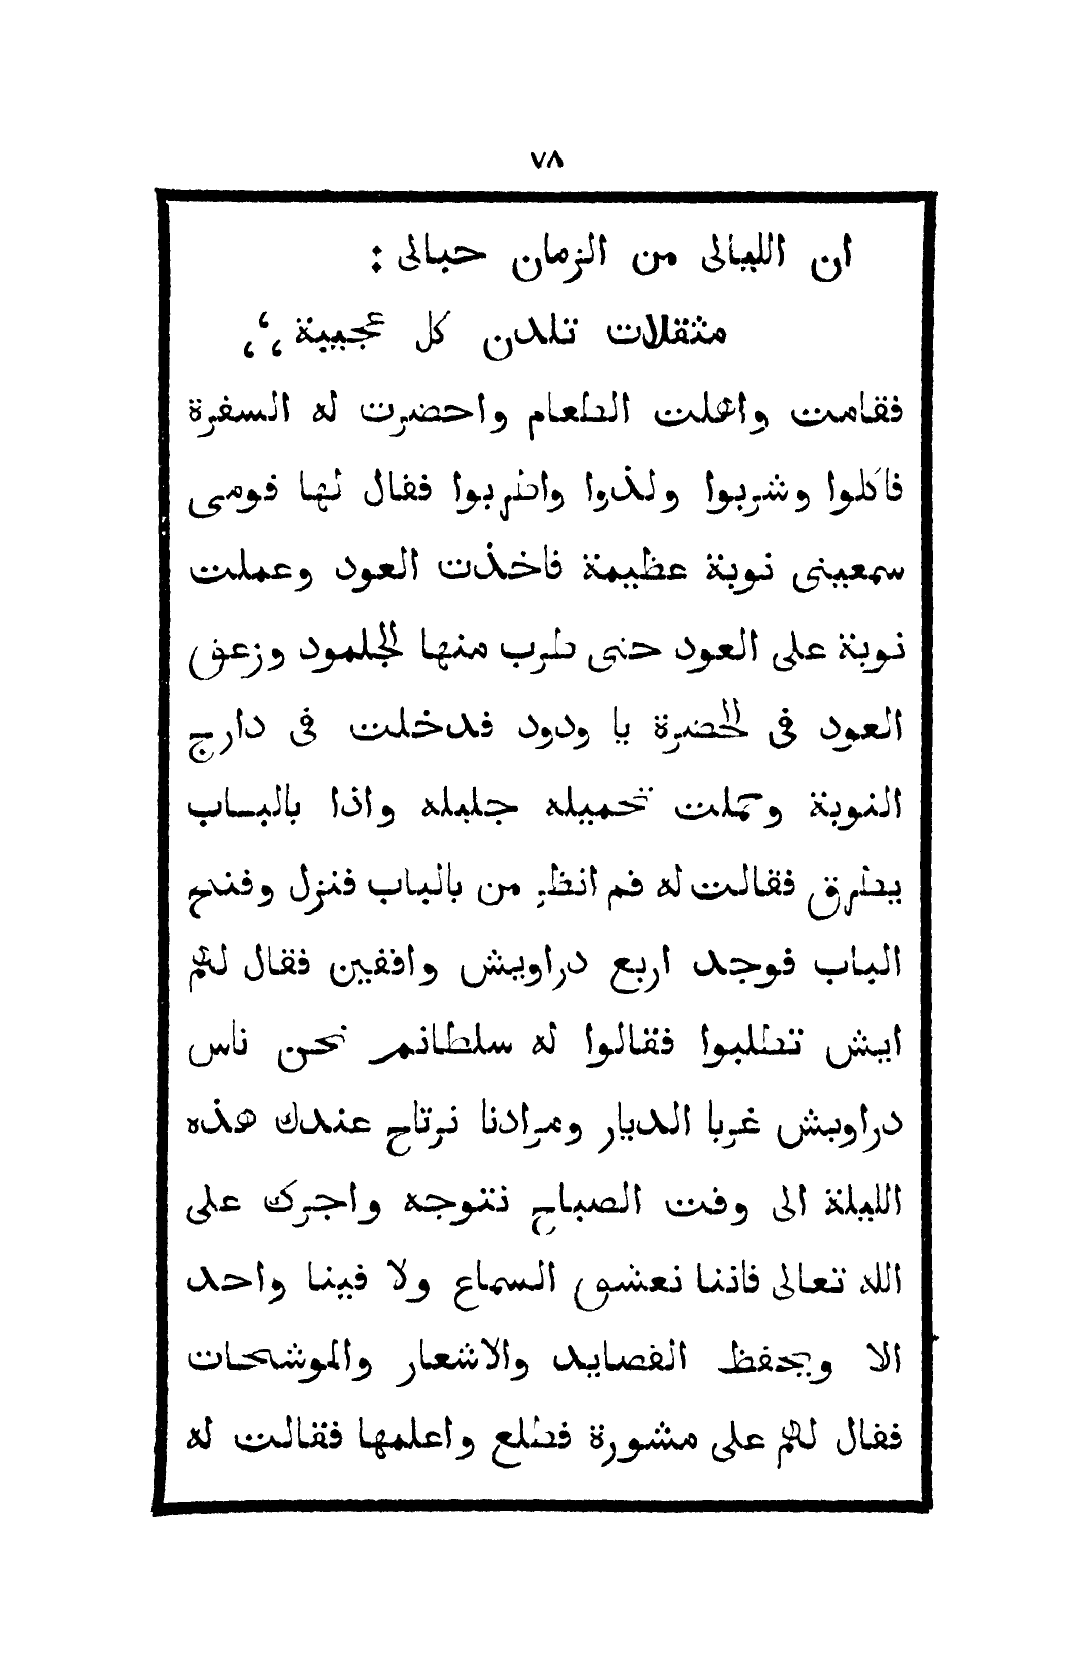 ٧٨
ان الليالى من الزمان حبالى :
مثقلات تلدن كل عجيبة ،‘،
فقامت واعملت الطعام واحضرت له السفرة
فاكلوا وشربوا ولذوا واطربوا فقال لها قومى
سمعينى نوبة عظيمة فاخذت العود وعملت
نوبة على العود حتى طرب منها الجلمود وزعق
العود فى الحضرة يا ودود فدخلت فى دارج
النوبة وكملت تحميله جليله واذا بالباب
يطرق فقالت له قم انظر من بالباب فنزل وفتح
الباب فوجد اربع دراويش واقفين فقال لهم
ايش تطلبوا فقالوا له سلطانم نحن ناس
دراويش غربا الديار ومرادنا نرتاح عندك هذه
الليلة الى وقت الصباح نتوجه واجرك على
الله تعالى فاننا نعشق السماع ولا فينا واحد
الا ويحفظ القصايد والاشعار والموشحات
فقال لهم على مشورة فطلع واعلمها فقالت له